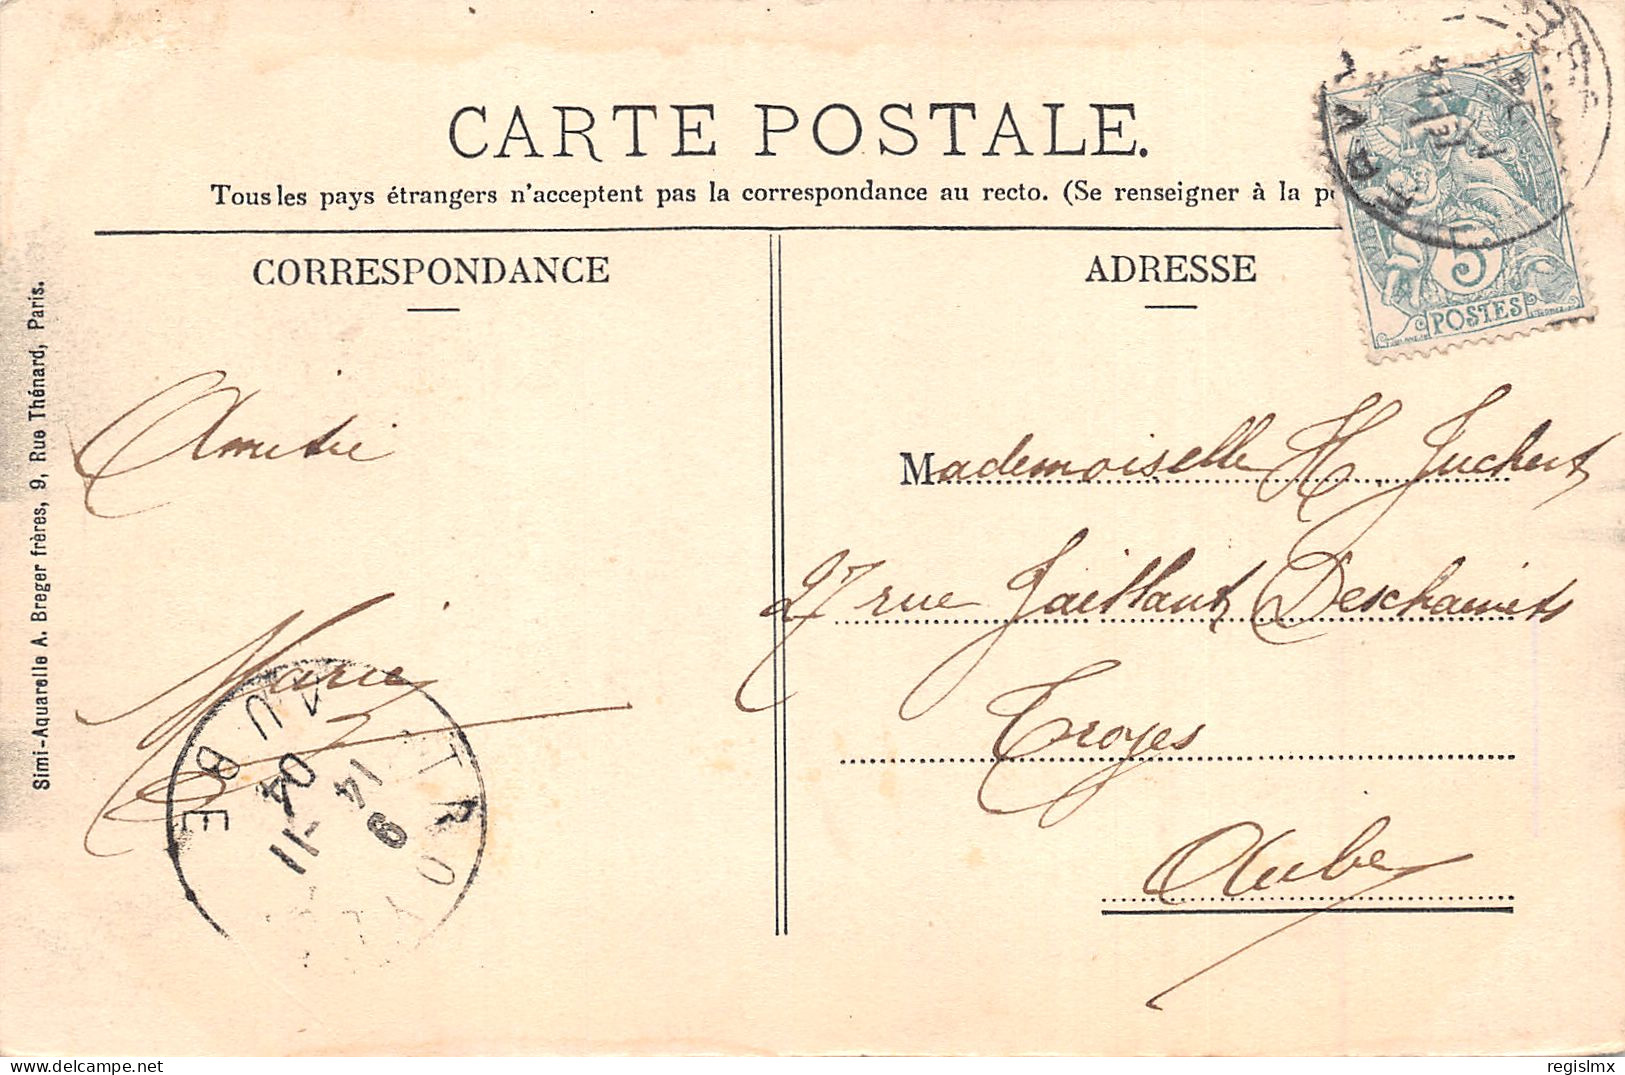 CARTE POSTALE.
Tous les pays étrangers n'acceptent pas la correspondance au recto. (Se renseigner à la p
CORRESPONDANCE
ADRESSE
5
POSTES
Simi-Aquarelle A. Breger frères, 9, Rue Thénard, Paris.
Amitié
Marie
TROYES
AUBE
14
9 -11
04
Mademoiselle H. Juchert
27 rue Jaillant Deschainets
Troyes
Aube
regislmx